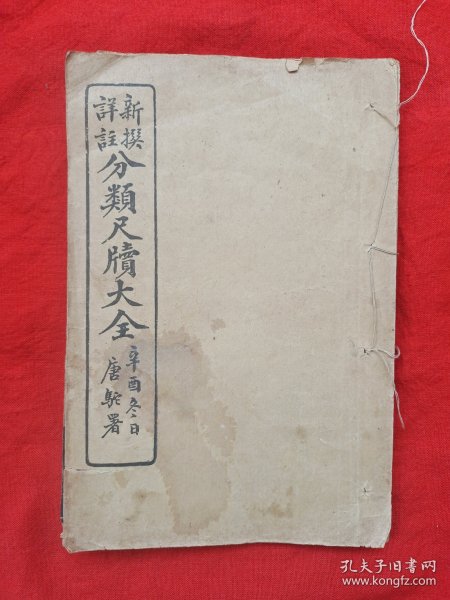 新撰
詳註
分類尺牘大全
辛酉冬日
唐駝署
孔夫子旧书网
www.kongfz.com